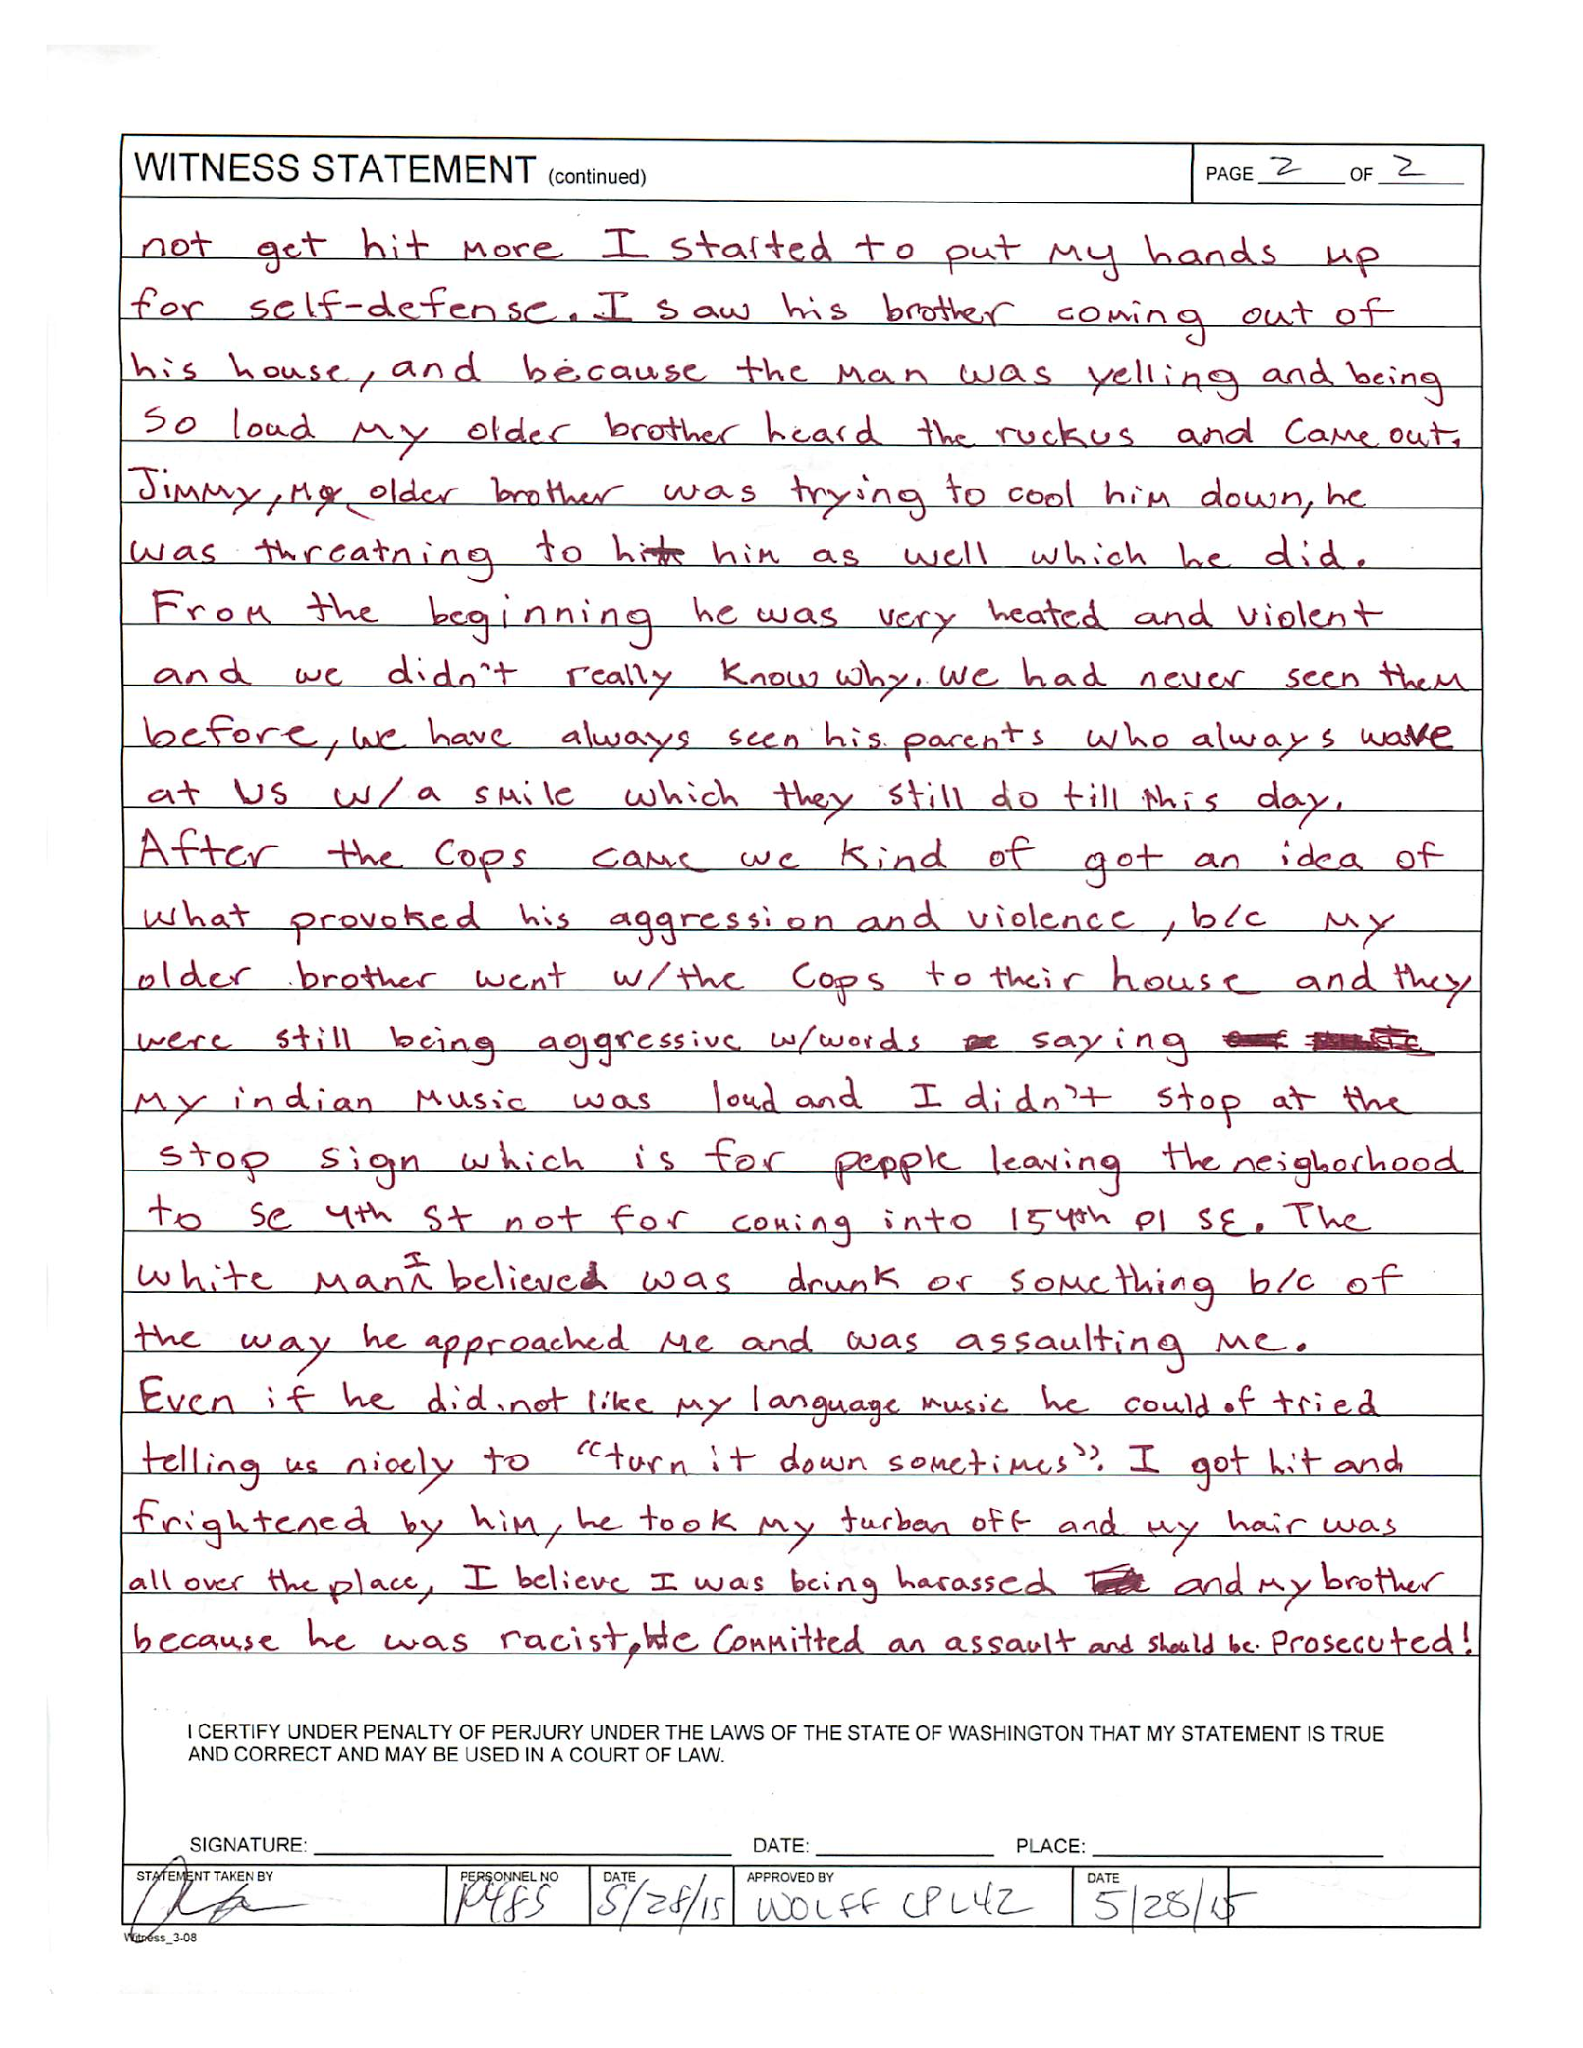 WITNESS STATEMENT (continued) PAGE 2 OF 2
not get hit more I started to put my hands up
for self-defense. I saw his brother coming out of
his house, and because the man was yelling and being
so loud my older brother heard the ruckus and came out.
Jimmy, my older brother was trying to cool him down, he
was threatning to hit him as well which he did.
From the beginning he was very heated and violent
and we didn't really know why. we had never seen them
before, we have always seen his parents who always wave
at us w/a smile which they still do till this day.
After the cops came we kind of got an idea of
what provoked his aggression and violence, b/c my
older brother went w/the cops to their house and they
were still being aggressive w/words saying
my indian music was loud and I didn't stop at the
stop sign which is for pepple leaving the neigborhood
to se 4th st not for coming into 154th pl SE. The
white man I believed was drunk or something b/c of
the way he approached me and was assaulting me.
Even if he did not like my language music he could of tried
telling us nicely to "turn it down sometimes". I got hit and
frightened by him, he took my turban off and my hair was
all over the place, I believe I was being harassed and my brother
because he was racist, He committed an assault and should be prosecuted!
I CERTIFY UNDER PENALTY OF PERJURY UNDER THE LAWS OF THE STATE OF WASHINGTON THAT MY STATEMENT IS TRUE
AND CORRECT AND MAY BE USED IN A COURT OF LAW.
SIGNATURE: DATE: PLACE:
STATEMENT TAKEN BY PERSONNEL NO DATE APPROVED BY DATE
5/28/15 WOLFF CPL42 5/28/15
Witness_3-08